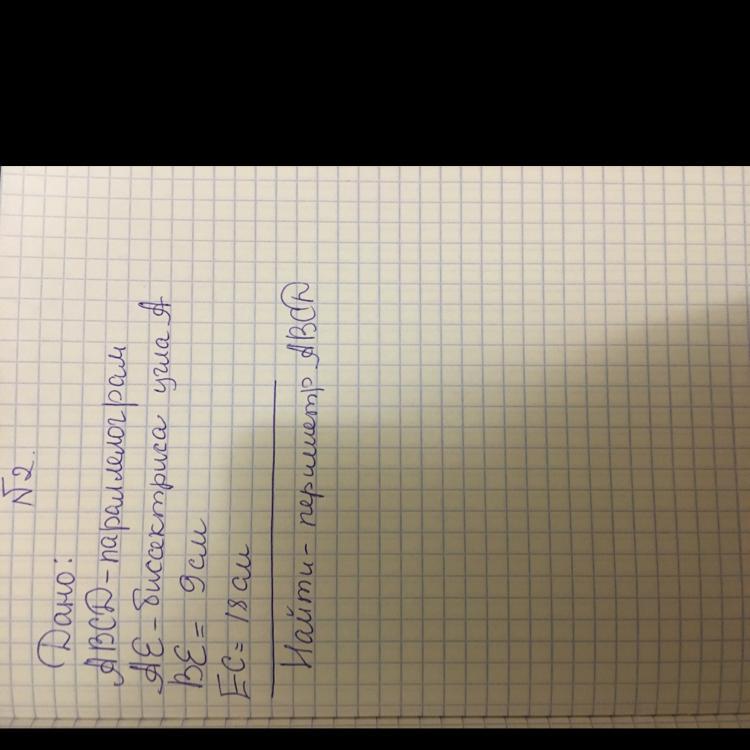 №2.
Дано:
ABCD-параллелограм
AE-биссектриса угла A
BE= 9см
EC= 18см
Найти- периметр ABCD